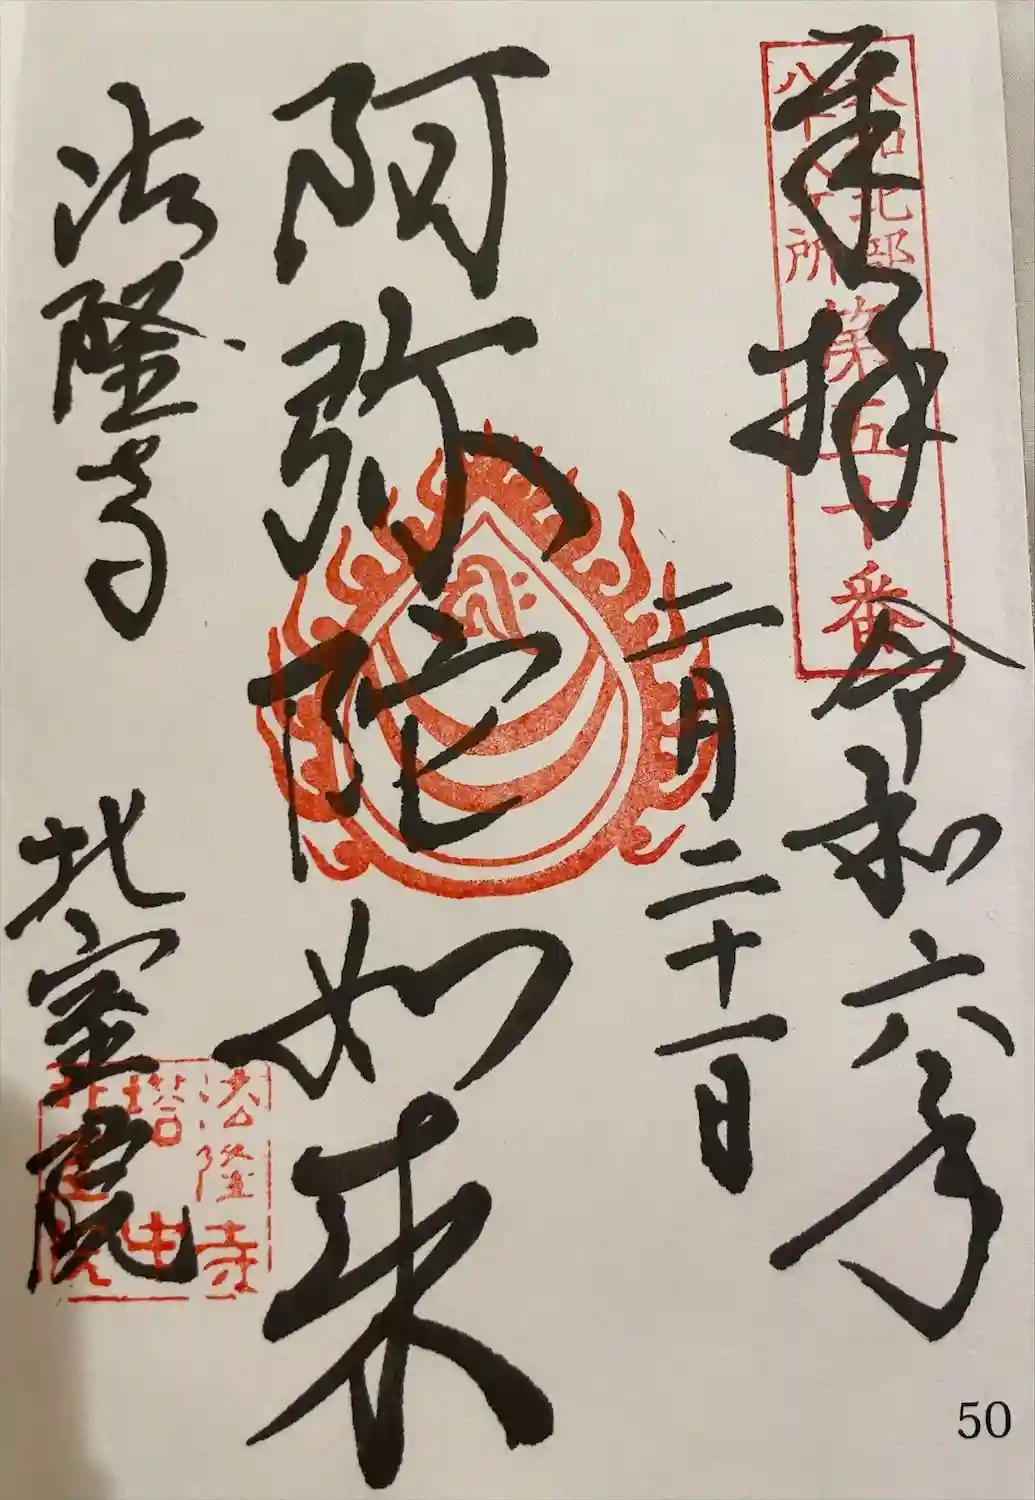 奉拝
大和北部
八十八ヶ所
第五十番
令和六年
二月二十一日
阿弥陀如来
法隆寺
北室院
法隆寺
塔中
北室院
50